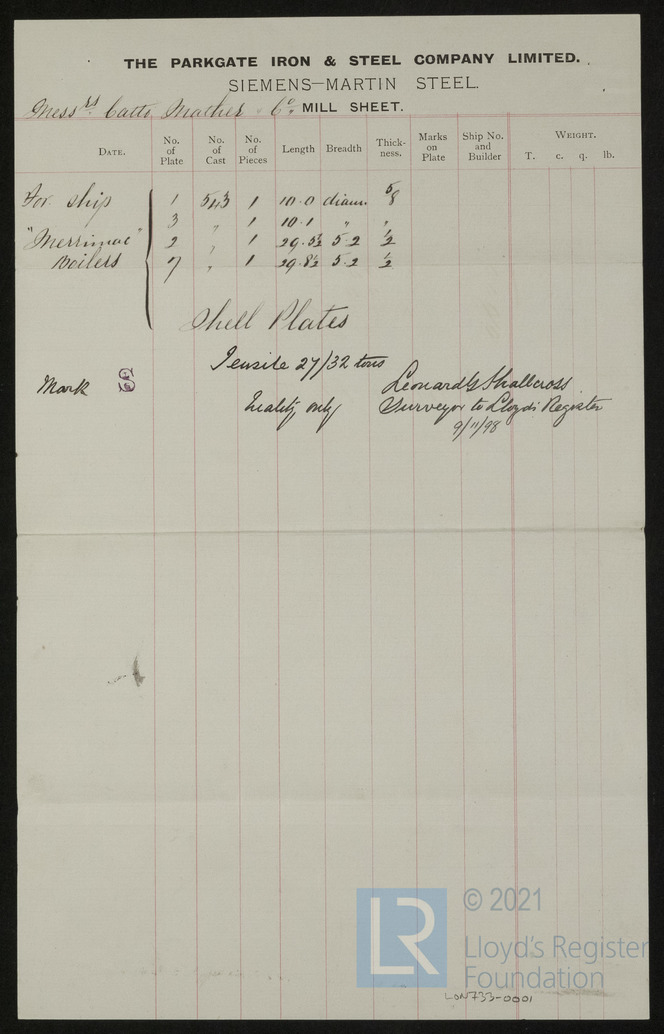 THE PARKGATE IRON & STEEL COMPANY LIMITED.
SIEMENS—MARTIN STEEL.
Messrs. Catto, Mather & Co. MILL SHEET.
DATE. No. of Plate No. of Cast No. of Pieces Length Breadth Thick-ness. Marks on Plate Ship No. and Builder WEIGHT. T. c. q. lb.
For ship 1 543 1 10.0 diam. 5/8
3 " 1 10.1 " "
"Merrimac" 2 " 1 29.5½ 5.2 ½
Boilers 7 " 1 29.8½ 5.2 ½
Shell Plates
Tensile 27/32 tons
Mark Leonard G Shallcross
Quality only Surveyor to Lloyds Register
9/11/98
LR
© 2021
Lloyd's Register
Foundation
LON733-0001